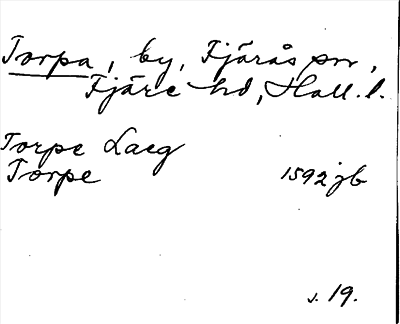 Torpa, by, Fjärås sn,
Fjäre hd, Hall. l.
Torpe Laeg
Torpe 1592 jb
s. 19.